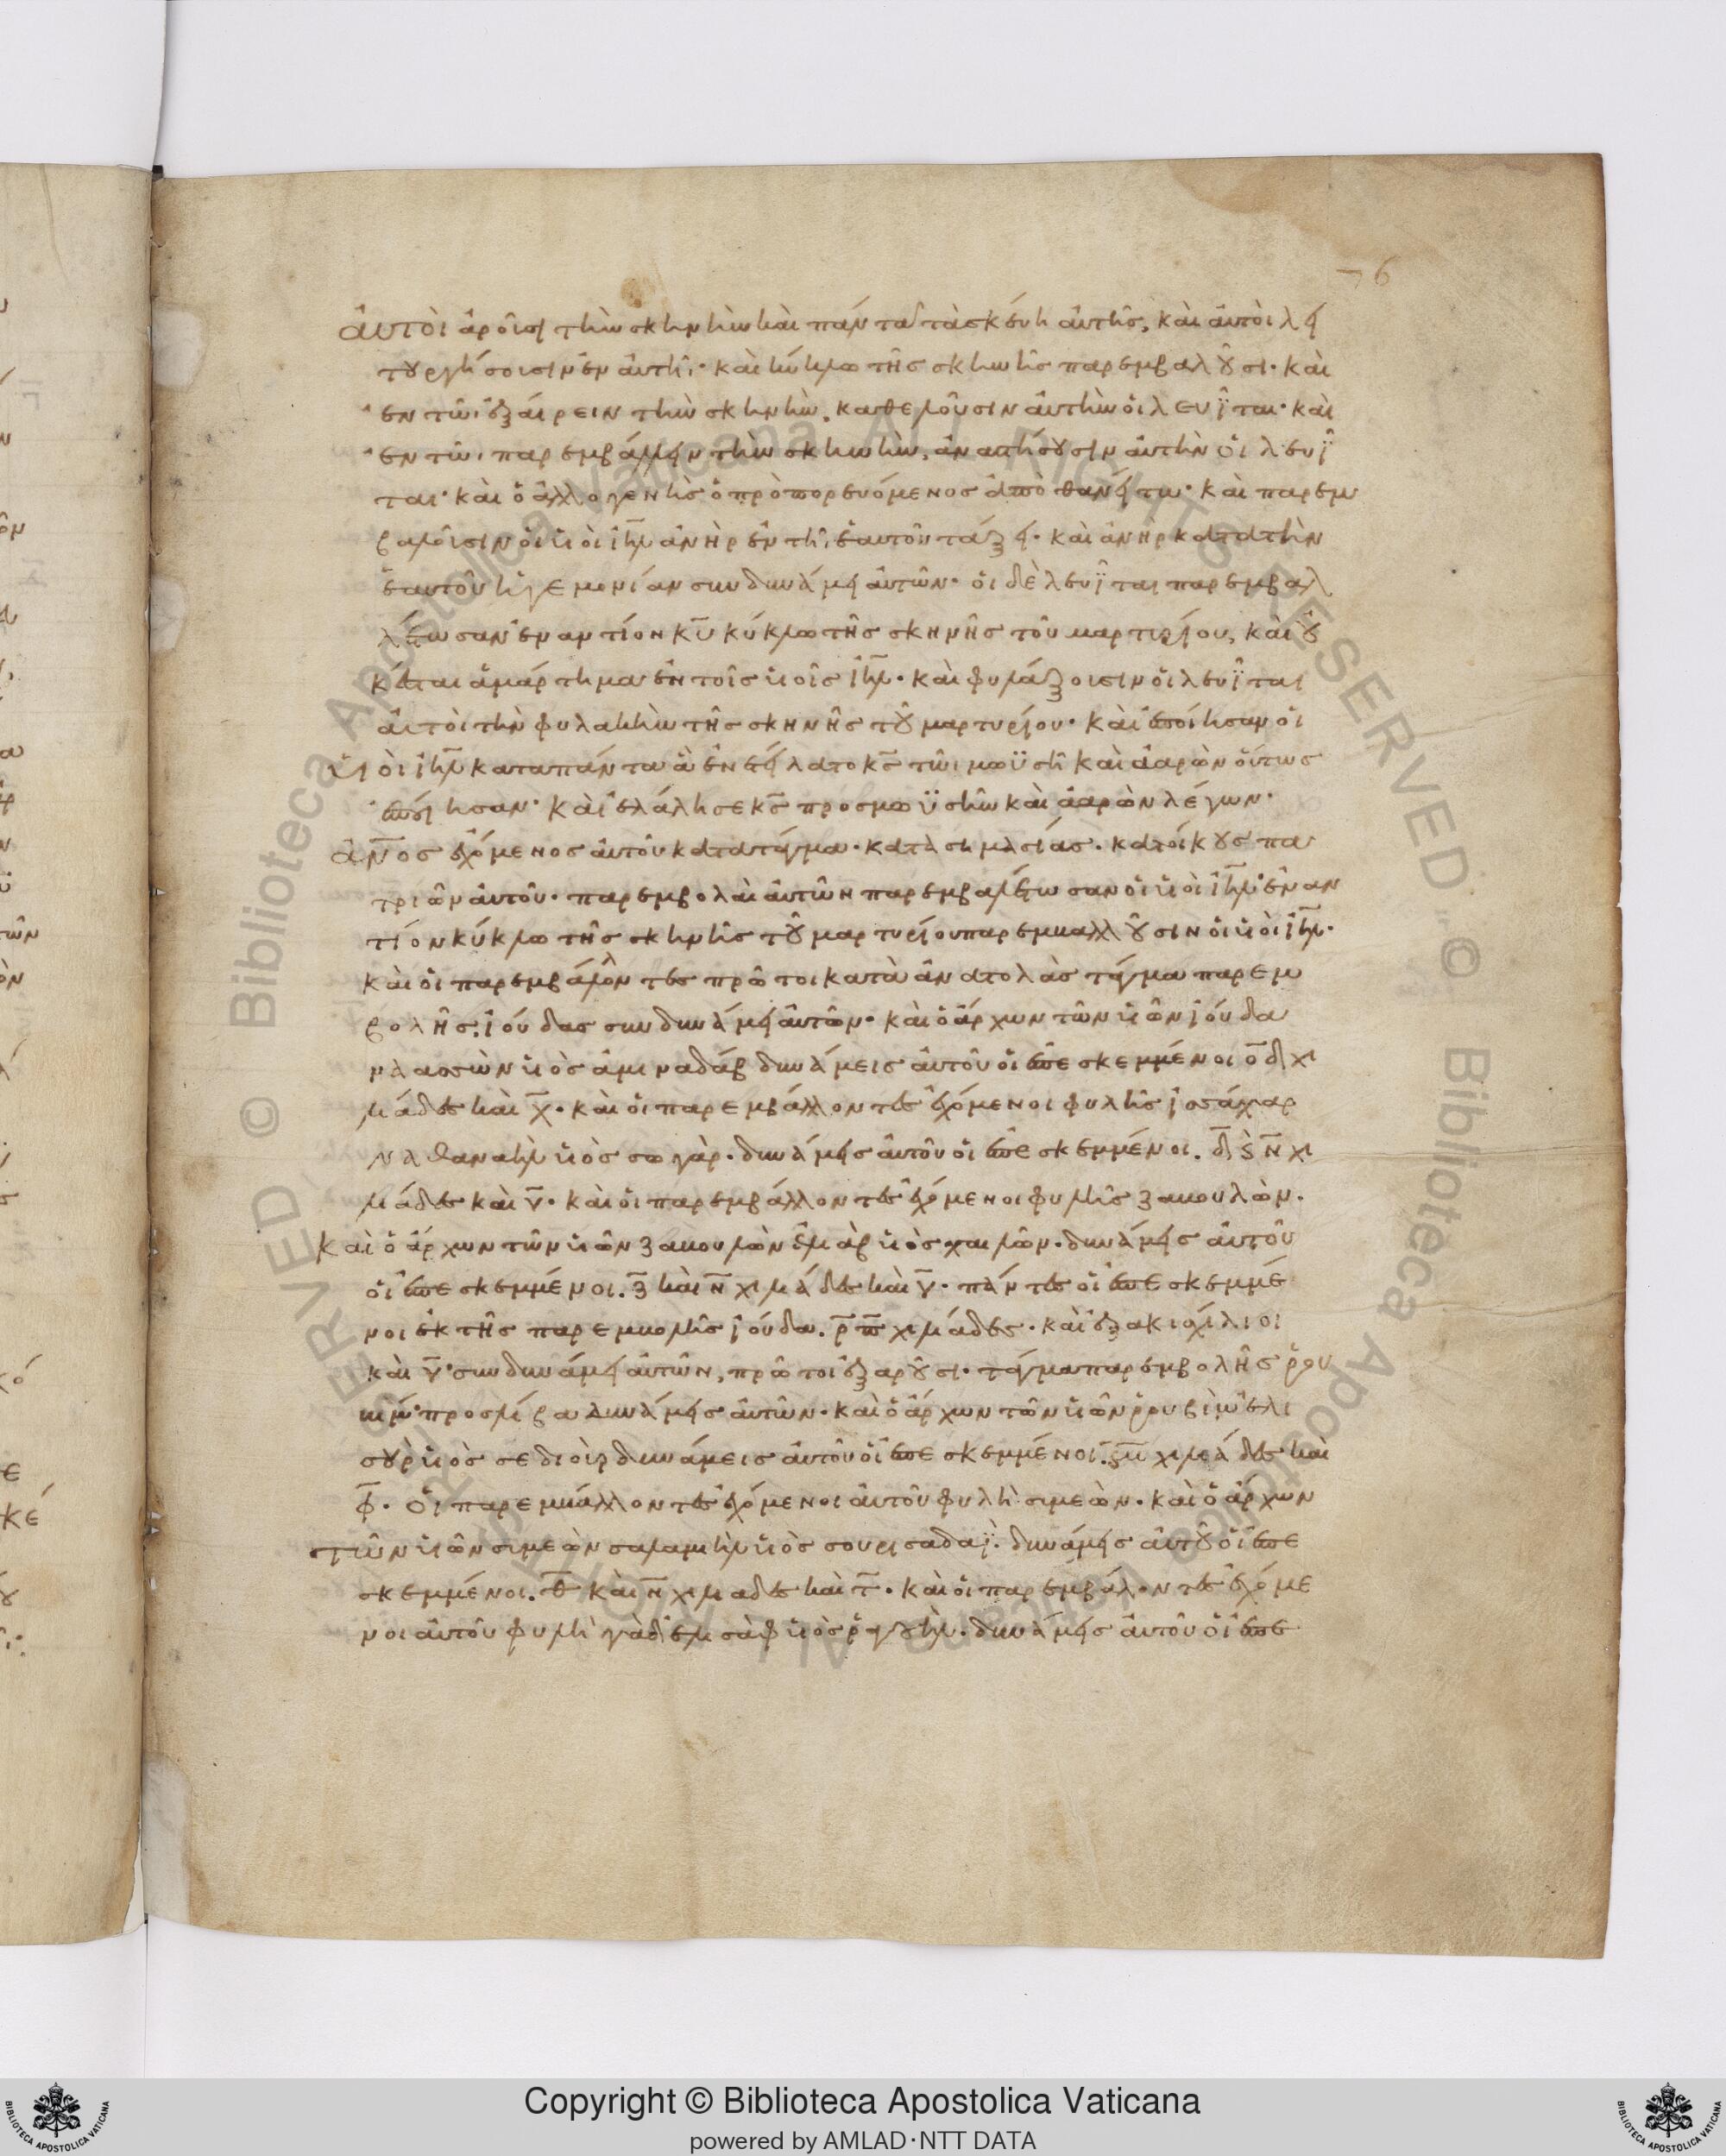 76
ἀυτὸι ἀροῦσι τὴν σκηνὴν και πάντα τὰσκέυη ἀυτῆς, και ἀυτὸι λει
τουργήσουσιν ἐν ἀυτῆι· και κύκλω τῆς σκηνῆς παρεμβαλοῦσι· και
ἐν τῶι ἐξάιρειν τὴν σκηνὴν. καθελοῦσιν ἀυτὴν ὁι λευΐται· και
ἐν τῶι παρεμβάλλειν τὴν σκηνὴν, ἀναστήσουσιν ἀυτὴν ὁι λευΐ
ται· και ὁ ἀλλογενὴς ὁ πρὸπορευόμενος ἀποθανέιτω· και παρεμ
βαλοῦσιν ὁι υἱοὶ ἰη̅λ ἀνὴρ ἐν τῆι ἑαυτοῦ τάξει· και ἀνὴρ κατατὴν
ἑαυτοῦ ἡγεμονίαν συν δυνάμει ἀυτῶν· ὁι δὲ λευΐται παρεμβαλ
λέτωσαν ἐναντίον κ̅υ κύκλω τῆς σκηνῆς τοῦ μαρτυρίου, και ὀυ
κέται ἁμάρτημα ἐν τοῖς υἱοῖς ἰη̅λ· και φυλάξουσιν ὁι λευΐται
ἀυτὸι τὴν φυλακὴν τῆς σκηνῆς τοῦ μαρτυρίου· και ἐποίησαν ὁι
υἱοὶ ἰη̅λ καταπάντα ἃ ἐνετέιλατο κ̅ς τῶι μωϋσῆ και ἀαρὼν ὅυτως
ἐποίησαν· και ἐλάλησε κ̅ς προς μωϋσῆν και ἀαρὼν λέγων·
ἀν̅ος ἐχόμενος ἀυτοῦ κατατάγμα· κατὰ σημασίας. κατοίκους πα
τριῶν ἀυτοῦ· παρεμβολὰι ἀυτῶν παρεμβαλέτωσαν ὁι υἱοὶ ἰη̅λ ἐναν
τίον κύκλω τῆς σκηνῆς τοῦ μαρτυρίου παρεμβαλλοῦσιν ὁι υἱοὶ ἰη̅λ·
και ὁι παρεμβάλοντες πρῶτοι κατὰ ἀνατολὰς τάγμα παρεμ
βολῆς· ἰούδας συν δυνάμει ἀυτῶν· και ὁ ἄρχων τῶν υἱῶν ἰούδα
ναασσὼν υἱὸς ἀμιναδάβ δυνάμεις ἀυτοῦ ὁι ἐπεσκεμμένοι ο̅δ χι
λιάδες και χ̅· και ὁι παρεμβάλλοντες ἐχόμενοι φυλῆς ἰσσάχαρ
ναθαναὴλ υἱὸς σωγὰρ· δυνάμεις ἀυτοῦ ὁι ἐπεσκεμμένοι. δ̅ ς̀ ν̅ χι
λιάδες και υ̅· και ὁι παρεμβάλλοντες ἐχόμενοι φυλῆς ζαβουλὼν.
και ὁ ἄρχων τῶν υἱῶν ζαβουλὼν ἐλιὰβ υἱὸς χαιλὼν· δυνάμεις ἀυτοῦ
ὁι ἐπεσκεμμένοι. ζ̅ και ν̅ χιλιάδες και υ̅· πάντες ὁι ἐπεσκεμμέ
νοι ἐκ τῆς παρεμβολῆς ἰούδα. ρ̅ π̅ χιλιάδες· και ἑξακισχίλιοι
και υ̅· συν δυνάμει ἀυτῶν, πρῶτοι ἐξαροῦσι· τάγμα παρεμβολῆς ῥου
βιμ· προς λίβα δυνάμεις ἀυτῶν· και ὁ ἄρχων τῶν υἱῶν ῥουβὶμ ἐλι
σοὺρ υἱὸς σεδιοὺρ δυνάμεις ἀυτοῦ ὁι ἐπεσκεμμένοι. ϛ̅μ̅ χιλιάδες και
φ̅· ὁι παρεμβάλλοντες ἐχόμενοι ἀυτοῦ φυλὴ σιμεὼν· και ὁ ἄρχων
τῶν υἱῶν σιμεὼν σαλαμιὴλ υἱὸς σουρισαδαΐ· δυνάμεις ἀυτοῦ ὁι ἐπε
σκεμμένοι. θ̅ και ν̅ χιλιαδες και τ̅· και ὁι παρεμβάλοντες ἐχόμε
νοι ἀυτοῦ φυλὴ γὰδ ἐλισὰφ υἱὸς ῥαγουὴλ· δυνάμεις ἀυτοῦ ὁι ἐπε
Copyright © Biblioteca Apostolica Vaticana
powered by AMLAD·NTT DATA